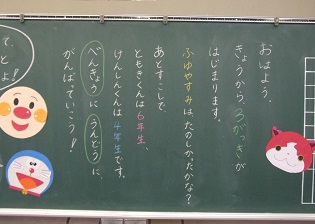 おはよう。
きょうから、3がっきが
はじまります。
ふゆやすみは、たのしかったかな?
あとすこしで、
ともきくんは6年生、
けんしんくんは4年生です。
べんきょうに うんどうに、
がんばっていこう!
て、
とよ!